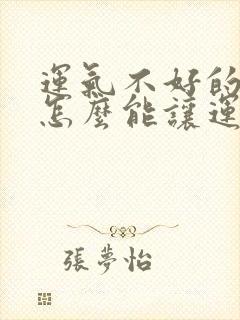 運氣不好的
怎麼能讓運
張夢怡